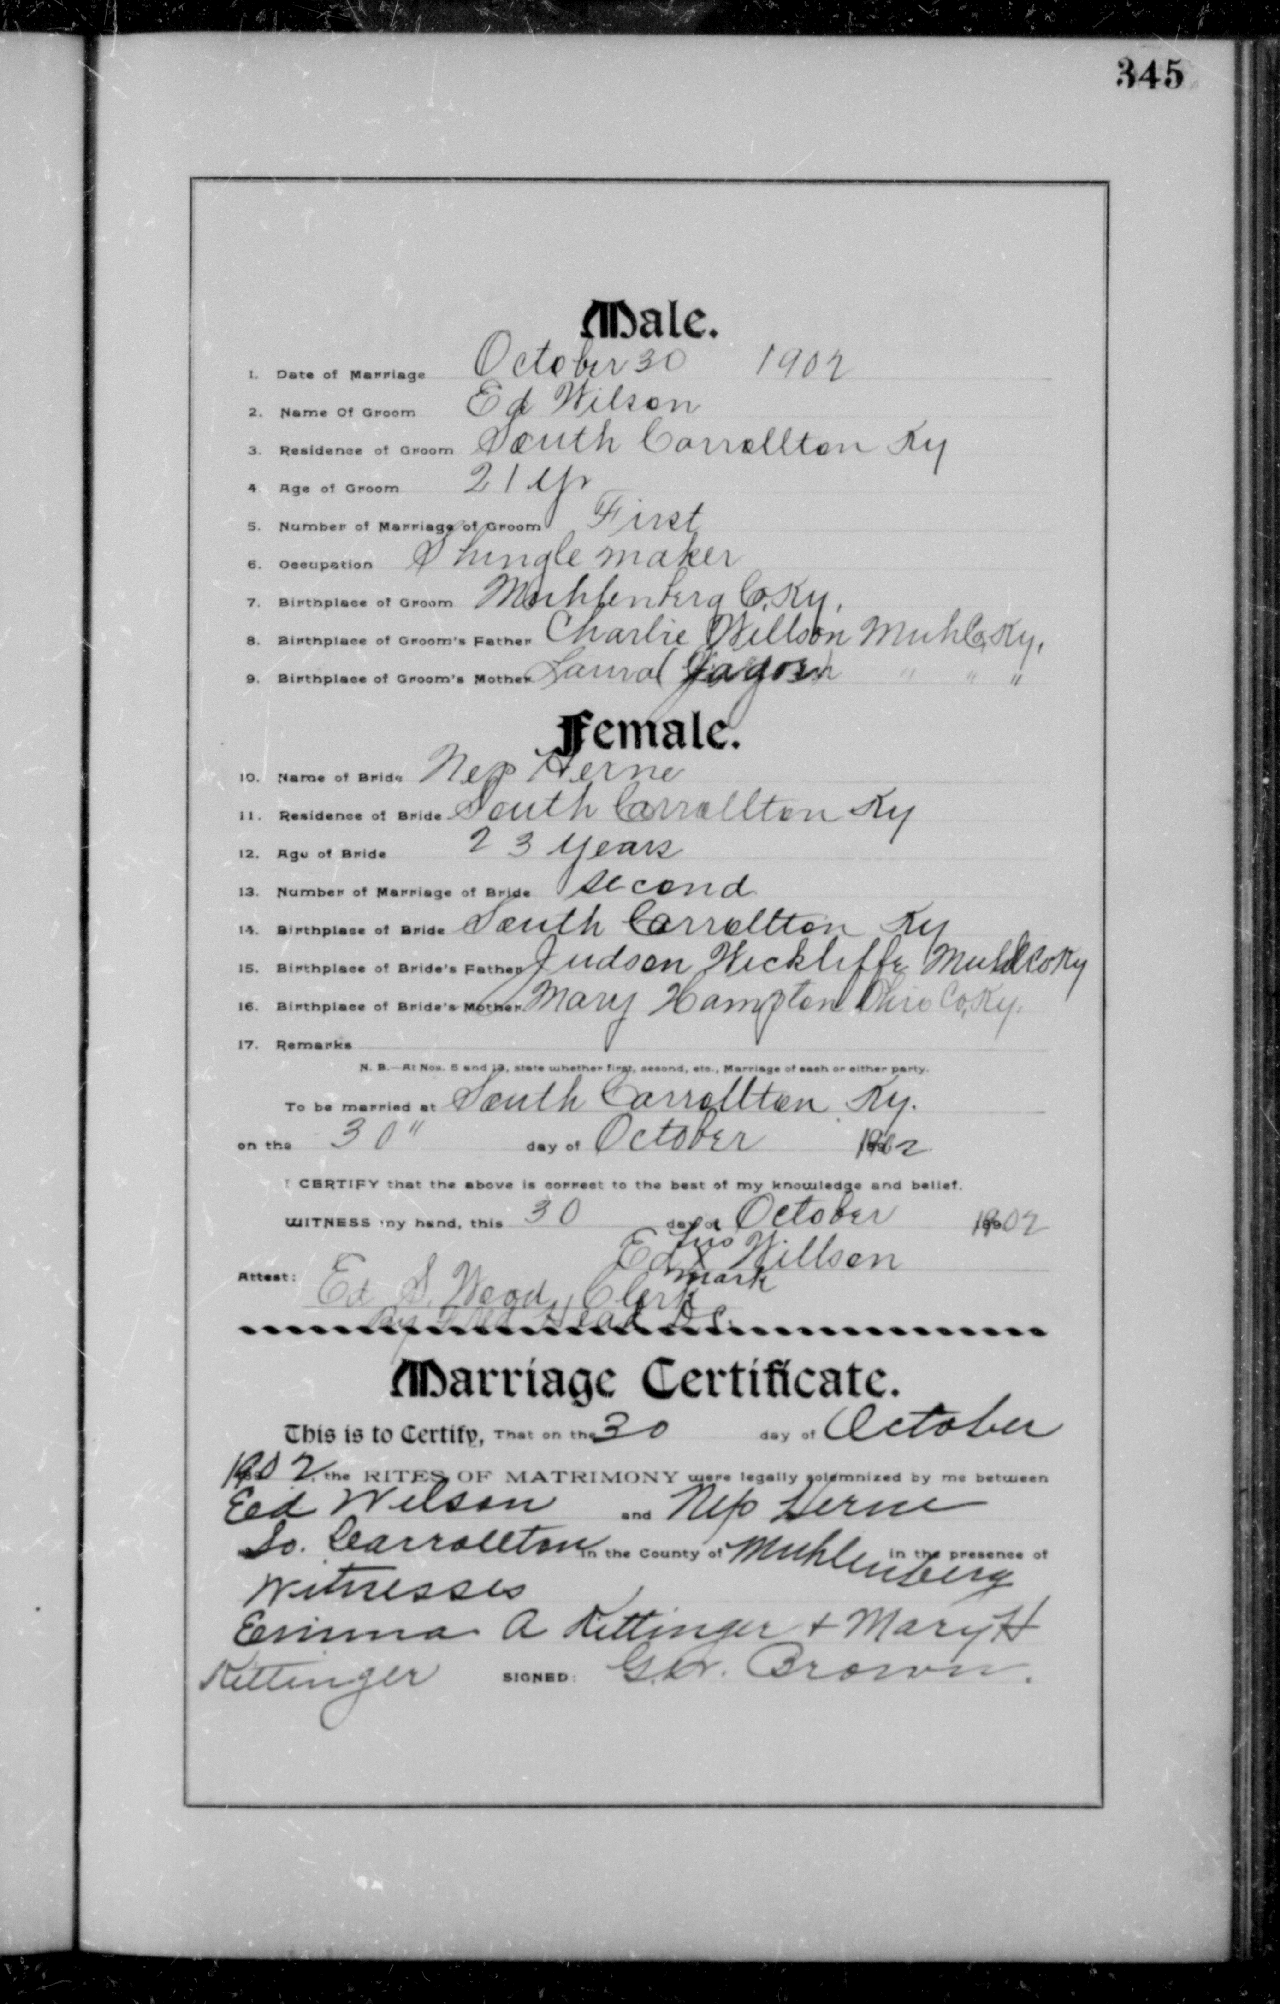 345
Male.
1. Date of Marriage October 30 1902
2. Name Of Groom Ed Wilson
3. Residence of Groom South Carrollton Ky
4. Age of Groom 21 yr
5. Number of Marriage of Groom First
6. Occupation Shingle maker
7. Birthplace of Groom Muhlenberg Co, Ky,
8. Birthplace of Groom's Father Charlie Willson Muhl Co, Ky,
9. Birthplace of Groom's Mother " " "
Female.
10. Name of Bride Nep Herne
11. Residence of Bride South Carrollton Ky
12. Age of Bride 23 years
13. Number of Marriage of Bride second
14. Birthplace of Bride South Carrollton Ky
15. Birthplace of Bride's Father Judson Wickliffe Muhl Co Ky
16. Birthplace of Bride's Mother Mary Hampton Ohio Co, Ky.
17. Remarks
N. B.—At Nos. 5 and 13, state whether first, second, etc., Marriage of each or either party.
To be married at South Carrollton Ky.
on the 30" day of October 1902
I CERTIFY that the above is correct to the best of my knowledge and belief.
WITNESS my hand, this 30 day of October 1902
his
Ed X Willson
mark
Attest: Ed S. Wood, Clerk
By Fred Head D.C.
Marriage Certificate.
This is to Certify, That on the 30 day of October
1902, the RITES OF MATRIMONY were legally solemnized by me between
Eed Wilson and Nep Herne
So. Carrollton in the County of Muhlenberg in the presence of
Witnesses
Emma A Kittinger + Mary H
Kittinger SIGNED: G.W. Brown.